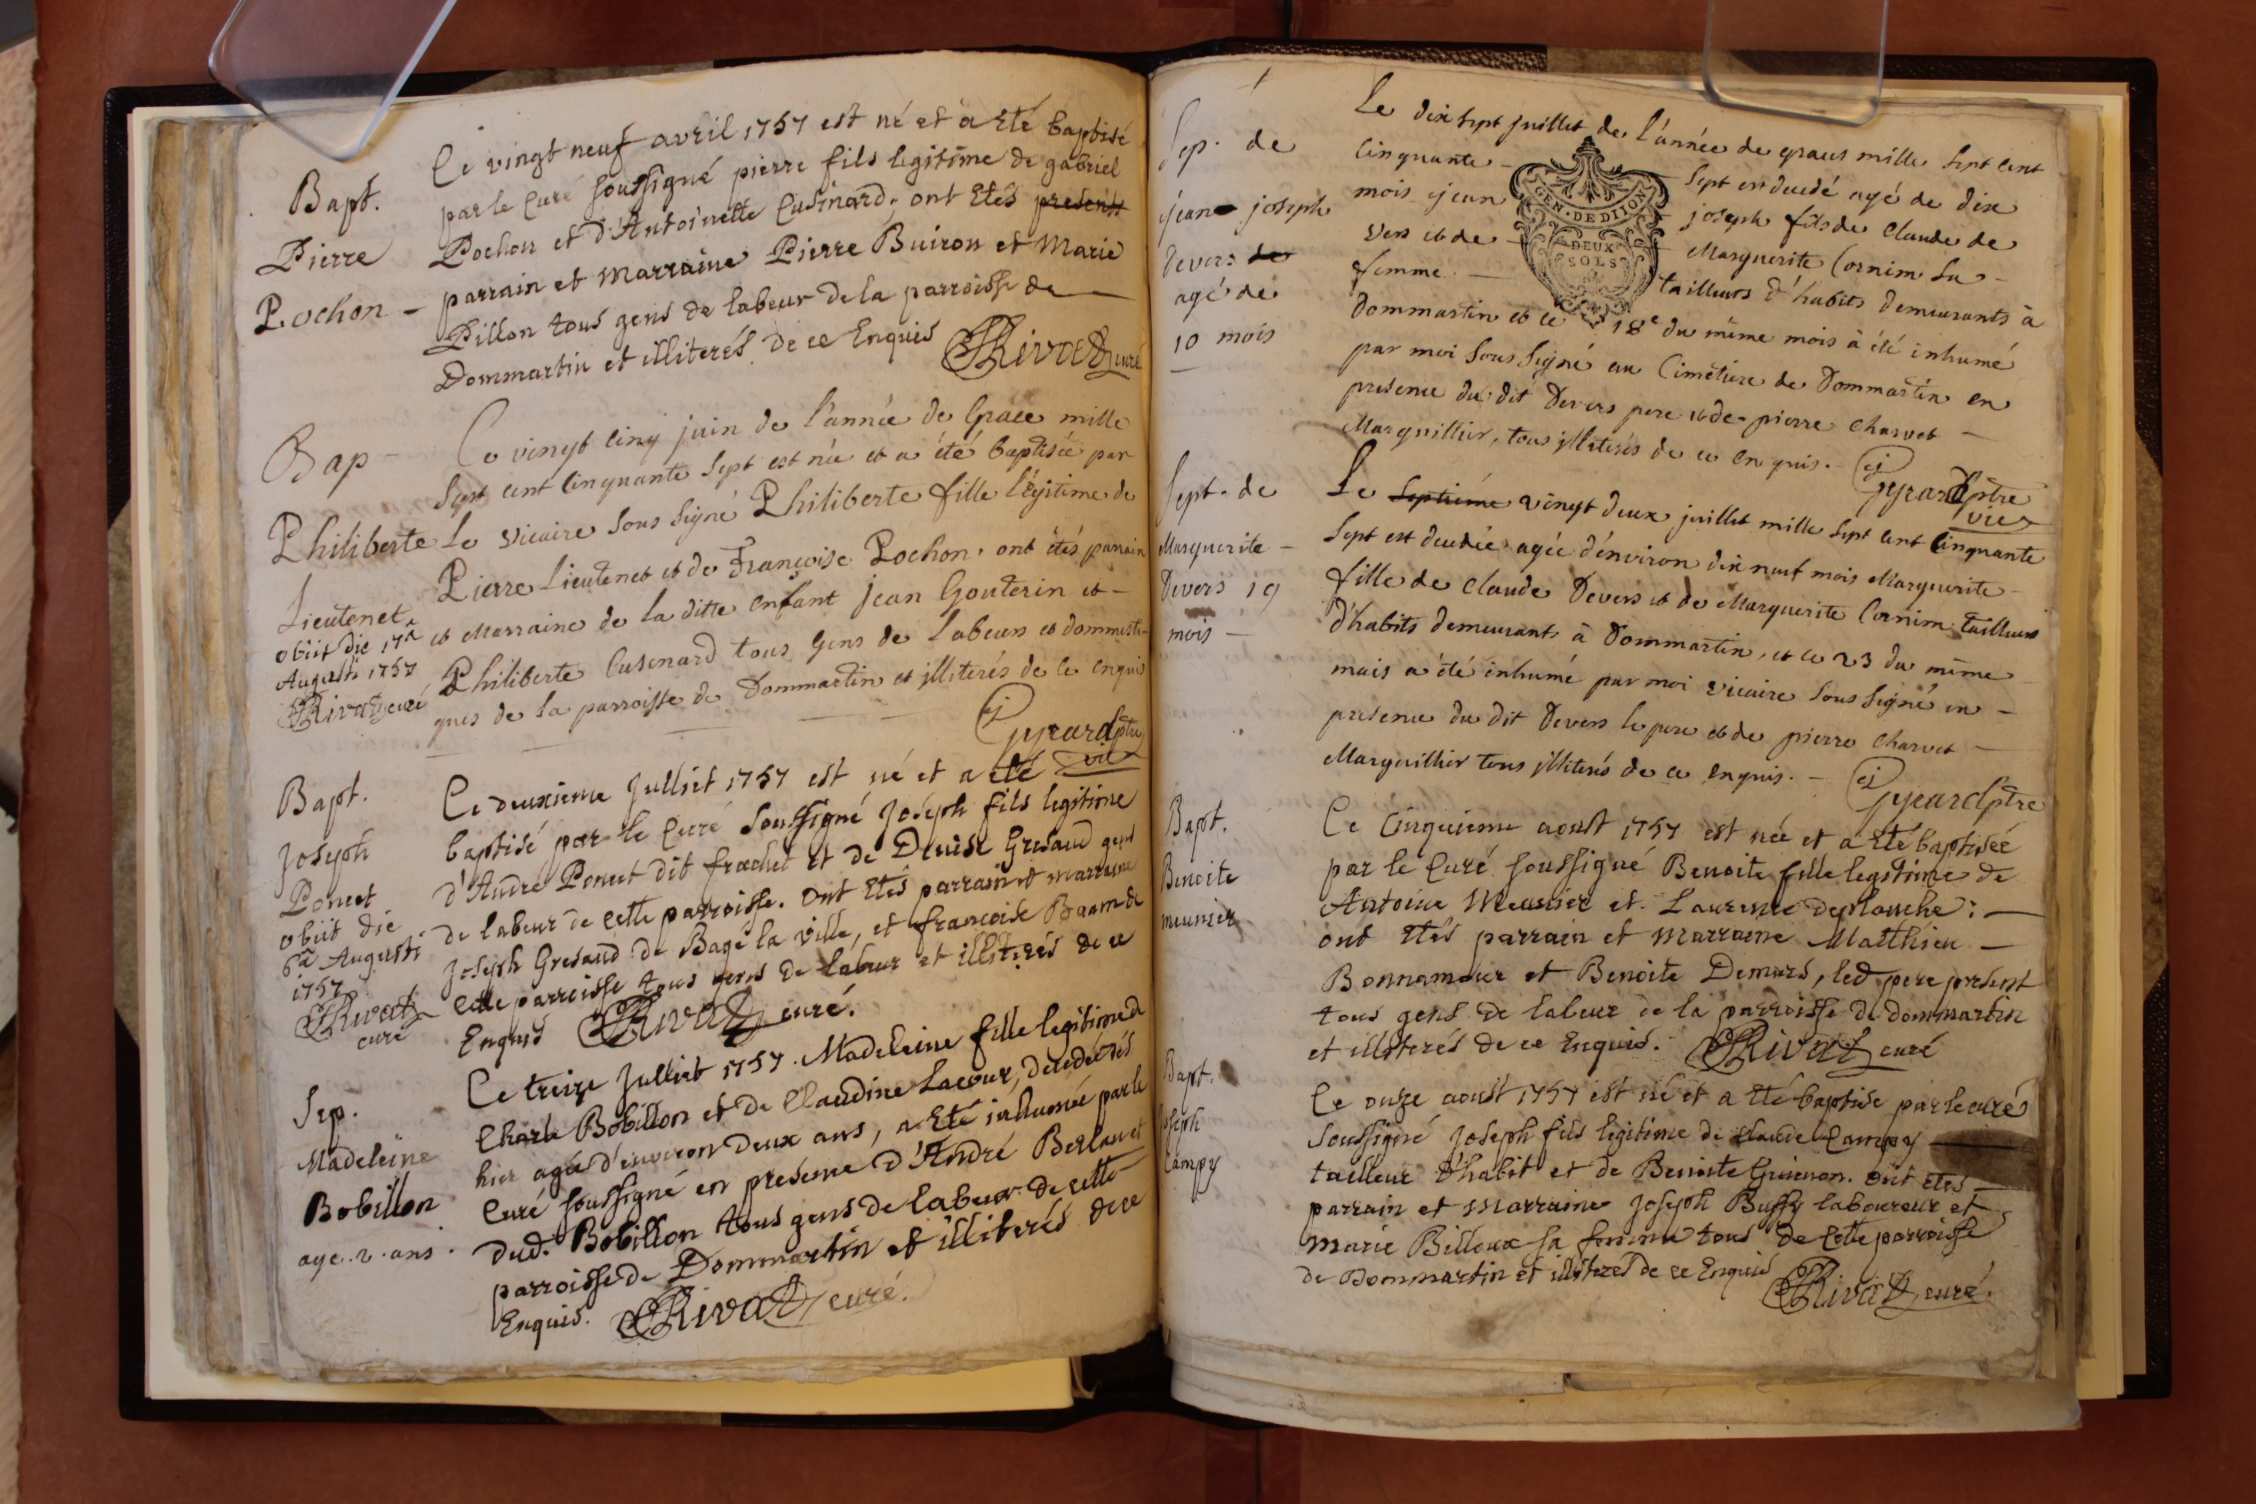 Bapt.
Pierre
Pochon -
Ce vingt neuf avril 1757 est né et à eté baptisé
par le Curé soussigné pierre fils legitime de gabriel
Pochon et d'Antoinette Cusinard, ont etés presents
parrain et marraine Pierre Buiron et Marie
Pillon tous gens de labeur de la parroisse de
Dommartin et illiterés de ce Enquis Rivat curé
Bap -
Philiberte
Lieutenet
obiit die 17a
Augusti 1757
Rivat curé
Ce vingt cinq juin de l'année de Grace mille
sept cent cinquante sept est née et a été baptisée par
le vicaire sous signé Philiberte fille légitime de
Pierre Lieutenet et de Françoise Pochon, ont étés parrain
et Marraine de la ditte enfant jean Gouterin et -
Philiberte Cusenard tous gens de labeur et dommesti-
ques de la parroisse de Dommartin et jlliterés de ce enquis
Gyrard ptre
vic
Bapt.
Joseph
Poncet
obiit die
6a Augusti
1757
Rivat
curé
Ce deuxieme Julliet 1757 est né et a eté
baptisé par le Curé Soussigné Joseph fils legitime
d'André Poncet dit frachet et de Denise Gresaud gens
de labeur de cette parroisse. ont etés parrain et marraine
Joseph Gresaud de Bagé la ville, et francoise de
cette parroisse tous gens de labeur et illiterés de ce
Enquis Rivat curé.
Sep.
Madeleine
Bobillon
age. 2. ans.
Ce treize Julliet 1757. Madeleine fille legitime de
Charle Bobillon et de Claudine Lacour, decedée
hier agée d'environ deux ans, a eté inhumée par le
Curé soussigné en presence d'André
dud. Bobillon tous gens de labeur de cette
parroisse de Dommartin et illiterés de ce
Enquis. Rivat curé.
Sep. de
jean joseph
Devers de
agé de
10 mois
Le dix sept juillet de l'année de graces mille sept cent
Cinquante - sept est decedé agé de dix
mois jean joseph fils de Claude de
vers et de - Marguerite Cornim sa -
femme - tailleurs d'habits demeurants à
GEN. DE DIJON
DEUX
SOLS
Dommartin et le 18e du même mois à été inhumé
par moi sous signé au Cimetiere de Dommartin en
presence du dit Devers pere et de pierre Charvet -
Marguillier, tous jlliterés de ce enquis. - Gyrard ptre
vic
Sept. de
Marguerite -
Devers 19
mois -
Le Septiéme vingt deux juillet mille sept cent Cinquante
sept est decedée agée d'énviron dix neuf mois Marguerite -
fille de Claude Devers et de Marguerite Cornim tailleurs
d'habits demeurants à Dommartin, et le 23 du même
mois a été inhumé par moi vicaire sous signé en -
presence du dit Devers le pere et de pierre Charvet -
Marguillier tous jlliterés de ce enquis. - Gyrard ptre
Bapt.
Benoite
meunier
Ce Cinquieme aoust 1757 est née et a eté baptisée
par le Curé soussigné Benoite fille legitime de
Antoine Meunier et Laurence deplanche: -
ont etés parrain et marraine Matthieu -
Bonnamour et Benoite Demurs, led pere present
tous gens de labeur de la parroisse de dommartin
et illiterés de ce Enquis. Rivat curé
Bapt.
Joseph
Campy
Ce onze aoust 1757 est né et a eté baptisé par le curé
Soussigné Joseph fils legitime de Claude Campy
tailleur d'habit et de Benoite Guienon. ont etes -
parrain et Marraine Joseph Buffy laboureur et
Marie Billoux sa femme tous de cette parroisse
de Dommartin et illiterés de ce Enquis Rivat, curé.